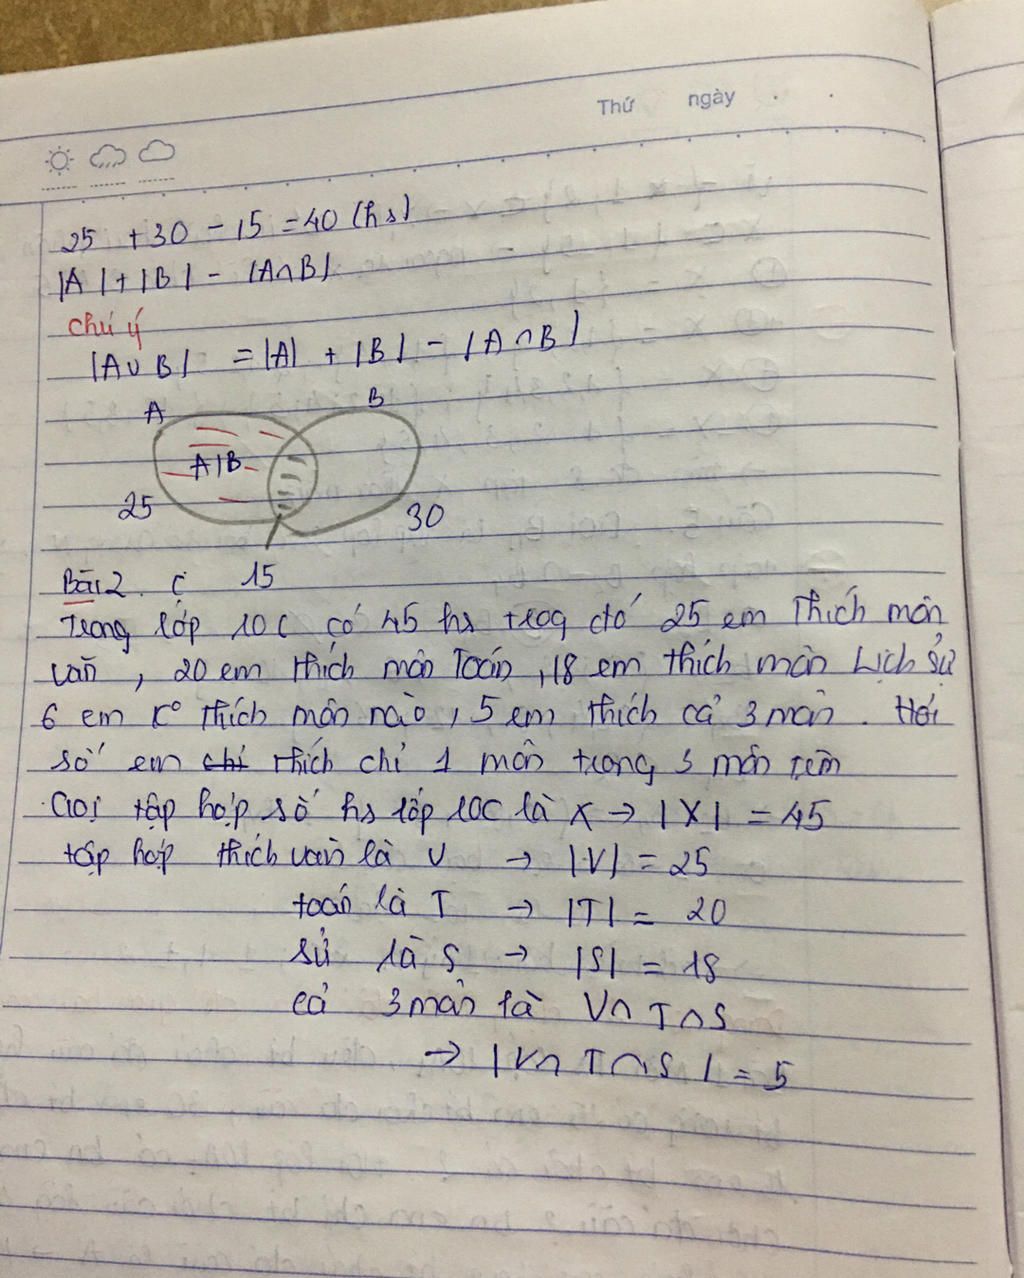 Thứ ngày
25 + 30 - 15 = 40 (hs)
|A| + |B| - |A∩B|
chú ý
|A∪B| = |A| + |B| - |A∩B|
A B
A|B
25 30
15
Bài 2.
Trong lớp 10C có 45 hs trog đó 25 em thích môn
văn, 20 em thích môn Toán, 18 em thích môn Lịch Sử
6 em k° thích môn nào, 5 em thích cả 3 môn. Hỏi
số em chỉ thích chỉ 1 môn trong 3 môn trên
Gọi tập hợp số hs lớp 10C là X → |X| = 45
tập hợp thích văn là V → |V| = 25
toán là T → |T| = 20
sử là S → |S| = 18
cả 3 môn là V∩T∩S
→ |V∩T∩S| = 5